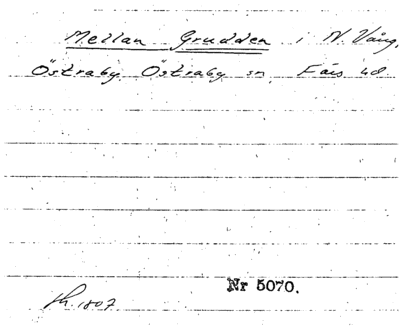 Mellan Grudden i N. Vång,
Östraby Östraby sn, Färs hd
Nr 5070.
1807